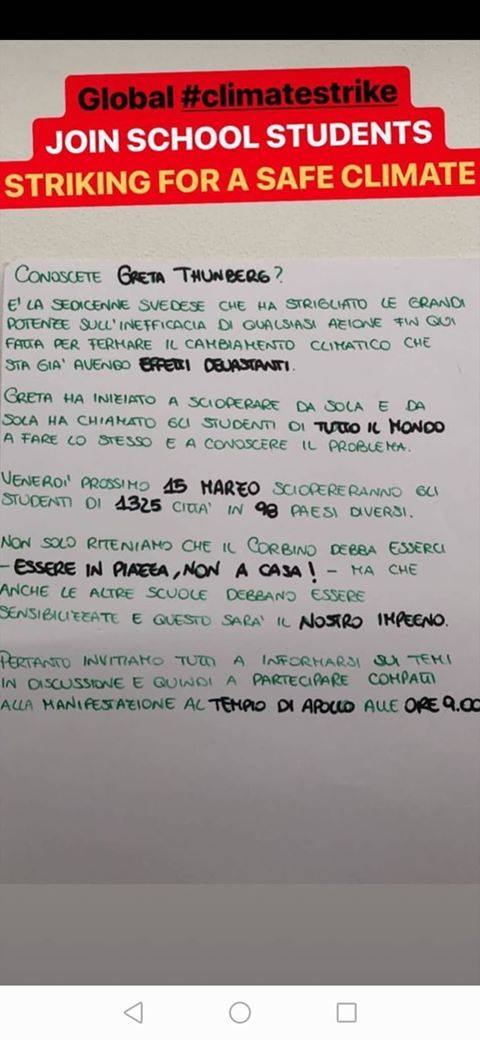 Global #climatestrike
JOIN SCHOOL STUDENTS
STRIKING FOR A SAFE CLIMATE
CONOSCETE GRETA THUNBERG?
E' LA SEDICENNE SVEDESE CHE HA STRIGLIATO LE GRANDI
POTENZE SULL'INEFFICACIA DI QUALSIASI AZIONE FIN QUI
FATTA PER FERMARE IL CAMBIAMENTO CLIMATICO CHE
STA GIA' AVENDO EFFETTI DEVASTANTI.
GRETA HA INIZIATO A SCIOPERARE DA SOLA E DA
SOLA HA CHIAMATO GLI STUDENTI DI TUTTO IL MONDO
A FARE LO STESSO E A CONOSCERE IL PROBLEMA.
VENERDI' PROSSIMO 15 MARZO SCIOPERERANNO GLI
STUDENTI DI 1325 CITTA' IN 98 PAESI DIVERSI.
NON SOLO RITENIAMO CHE IL CORBINO DEBBA ESSERCI
- ESSERE IN PIAZZA, NON A CASA! - MA CHE
ANCHE LE ALTRE SCUOLE DEBBANO ESSERE
SENSIBILIZZATE E QUESTO SARA' IL NOSTRO IMPEGNO.
PERTANTO INVITIAMO TUTTI A INFORMARSI SUI TEMI
IN DISCUSSIONE E QUINDI A PARTECIPARE COMPATTI
ALLA MANIFESTAZIONE AL TEMPIO DI APOLLO ALLE ORE 9.00